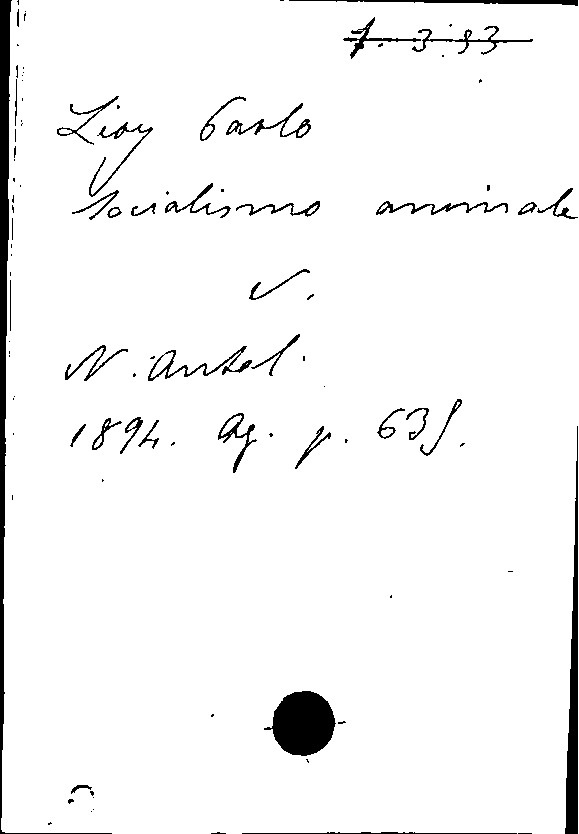 7. 3 93
Lioy Paolo
Socialismo animale
V.
N. Antol.
1894. Ag. p. 635.